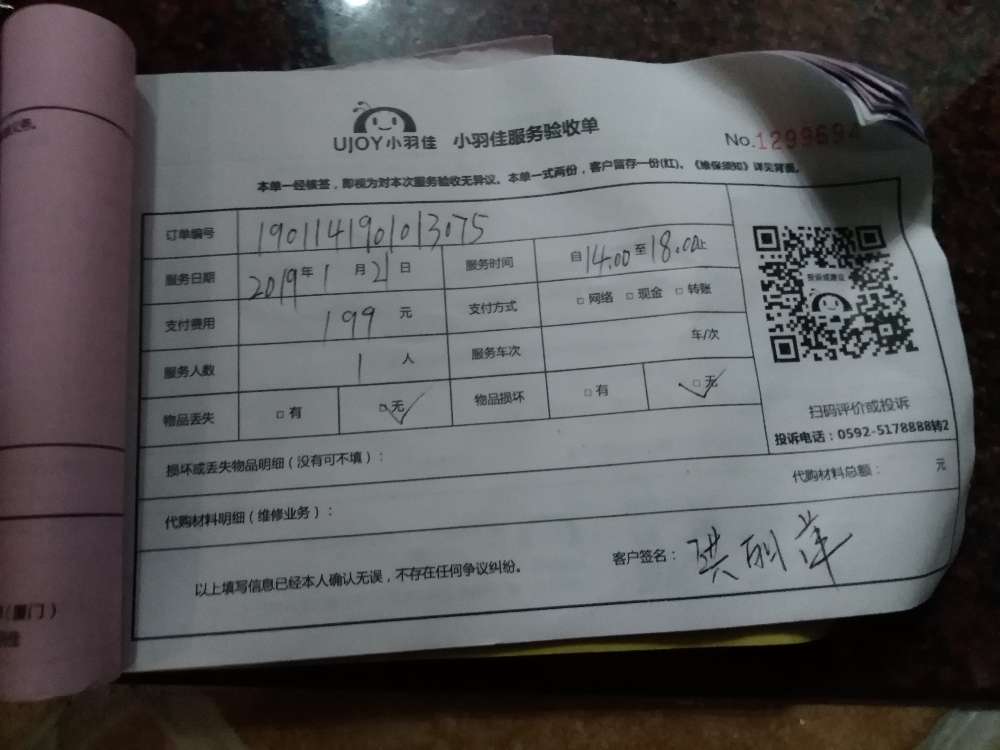 UJOY小羽佳 小羽佳服务验收单
No.1299694
本单一经核签，即视为对本次服务验收无异议。本单一式两份，客户留存一份(红)。《维保须知》详见背面。
订单编号 1901141901013075
服务日期 2019年1月21日 服务时间 自14.00至18.00止
支付费用 199元 支付方式 □网络 □现金 □转账
服务人数 1人 服务车次 车/次
物品丢失 □有 □无 物品损坏 □有 □无
投诉或建议
扫码评价或投诉
投诉电话：0592-5178888转2
损坏或丢失物品明细（没有可不填）：
代购材料明细（维修业务）： 代购材料总额： 元
以上填写信息已经本人确认无误，不存在任何争议纠纷。
客户签名：洪丽萍
（厦门）